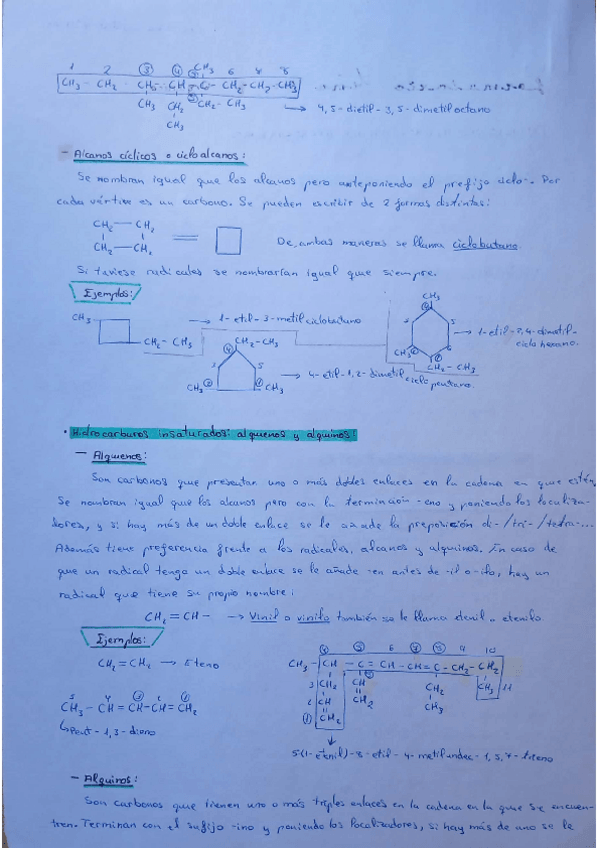 1 2 ③ ④ CH₃ 6 7 8
CH₃ - CH₂ - CH - CH - C - CH₂ - CH₂ - CH₃
CH₃ CH₂ CH₂ - CH₃ → 4,5-dietil-3,5-dimetiloctano
CH₃
- Alcanos cíclicos o cicloalcanos:
Se nombran igual que los alcanos pero anteponiendo el prefijo ciclo-. Por
cada vértice es un carbono. Se pueden escribir de 2 formas distintas:
CH₂ — CH₂
CH₂ — CH₂ = De ambas maneras se llama ciclobutano.
Si tuviese radicales se nombrarían igual que siempre.
Ejemplos:
CH₃
CH₃ → 1-etil-3-metilciclobutano
CH₂ - CH₃
CH₂ - CH₃
CH₃ CH₃ → 4-etil-1,2-dimetilciclopentano.
→ 1-etil-2,4-dimetil-
ciclohexano.
CH₃ CH₂ - CH₃
• Hidrocarburos insaturados: alquenos y alquinos:
- Alquenos:
Son carbonos que presentan uno o más dobles enlaces en la cadena en que estén.
Se nombran igual que los alcanos pero con la terminación -eno y poniendo los localiza-
dores, y si hay más de un doble enlace se le añade la preposición di-/tri-/tetra-...
Además tiene preferencia frente a los radicales, alcanos y alquinos. En caso de
que un radical tenga un doble enlace se le añade -en antes de -il o -ilo, hay un
radical que tiene su propio nombre:
CH₂ = CH - → Vinil o vinilo también se le llama etenil o etenilo
Ejemplos:
CH₂ = CH₂ → Eteno
④ ⑤ 6 ⑦ ⑧ 9 10
CH₃ - CH - C = CH - CH = C - CH₂ - CH₂
3 CH₂ CH CH₂ CH₃ 11
2 CH CH₂ CH₃
① CH₂
5 4 ③ 2 ①
CH₃ - CH = CH - CH = CH₂
↳ Pent-1,3-dieno
5(1-etenil)-8-etil-4-metilundec-1,5,7-trieno
- Alquinos:
Son carbonos que tienen uno o más triples enlaces en la cadena en la que se encuen-
tren. Terminan con el sufijo -ino y poniendo los localizadores, si hay más de uno se le